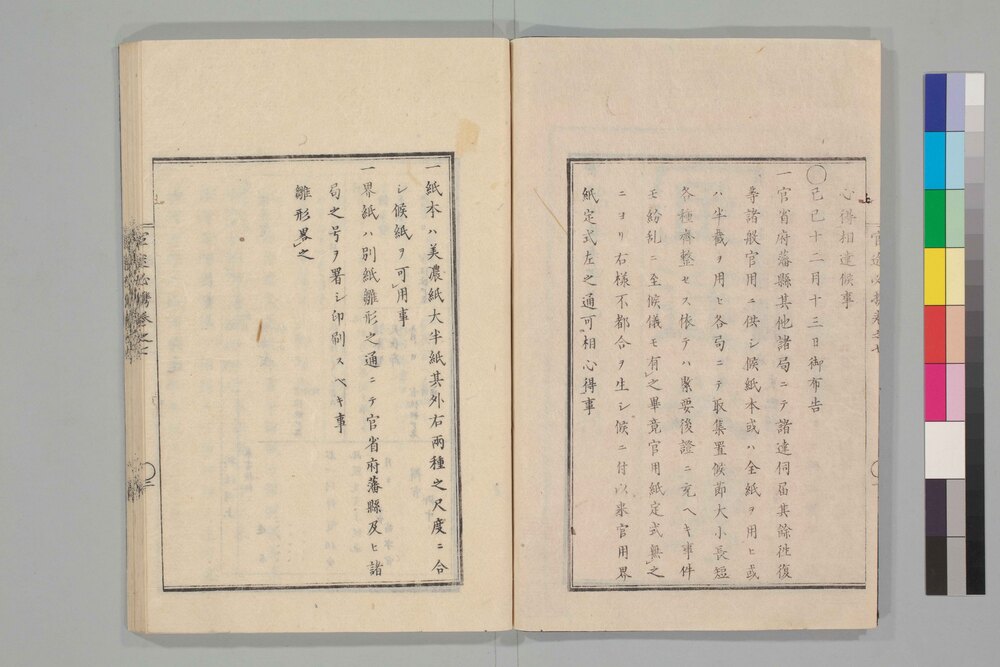 心得相違候事
〇己巳十二月十三日御布告
一官省府藩縣其他諸局ニテ諸達伺届其餘徃復
等諸般官用ニ供シ候紙本或ハ全紙ヲ用ヒ或
ハ半截ヲ用ヒ各局ニテ取集置候節大小長短
各種齊整セス依テハ緊要後證ニ充ヘキ事件
モ紛乱ニ至候儀モ有之畢竟官用紙定式無之
ニヨリ右様不都合ヲ生シ候ニ付以来官用界
紙定式左之通可相心得事
一紙本ハ美濃紙大半紙其外右兩種之尺度ニ合
シ候紙ヲ可用事
一界紙ハ別紙雛形之通ニテ官省府藩縣及ヒ諸
局之号ヲ署シ印刷スベキ事
雛形畧之